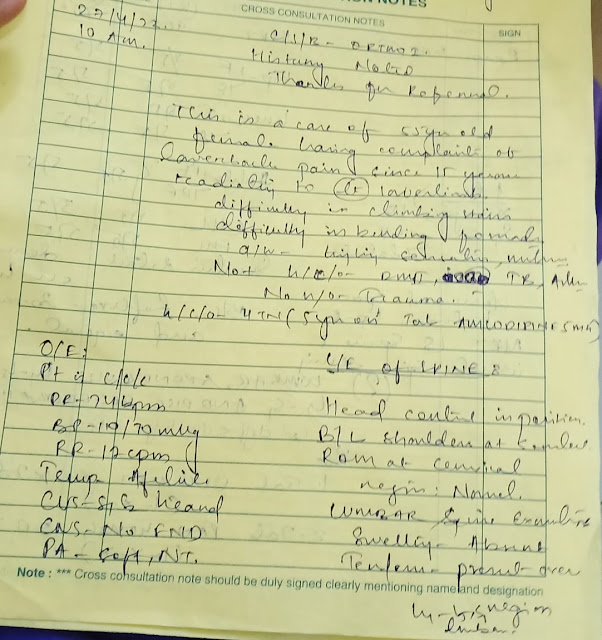 ON NOTES
CROSS CONSULTATION NOTES
SIGN
27/4/23.
10 Am.
C/S/B - ORTHO 2.
History Noted
Thanks for Referral.
This is a case of 55yr old
female having complaints of
lowerback pain since 15 years
radiating to Lt lowerlimb.
difficulty in climbing stairs
difficulty in bending forward
a/w - tingling sensation,
Not k/c/o - DM, TB,
No h/o - Trauma.
k/c/o - HTN (5yr on Tab AMLODIPINE 5mg)
O/E:
Pt is c/c/c
PR - 74 bpm
BP - 110/70 mmHg
RR - 12 cpm
Temp Afebrile.
CVS - S1 S2 heard
CNS - No FND
PA - Soft, NT.
L/E of SPINE :
Head central in position.
B/L shoulders at same level
ROM at cervical
region: Normal.
LUMBAR Spine
Swelling - Absent
Tenderness - present over
L4-L5 region
lumbar
Note : *** Cross consultation note should be duly signed clearly mentioning name and designation